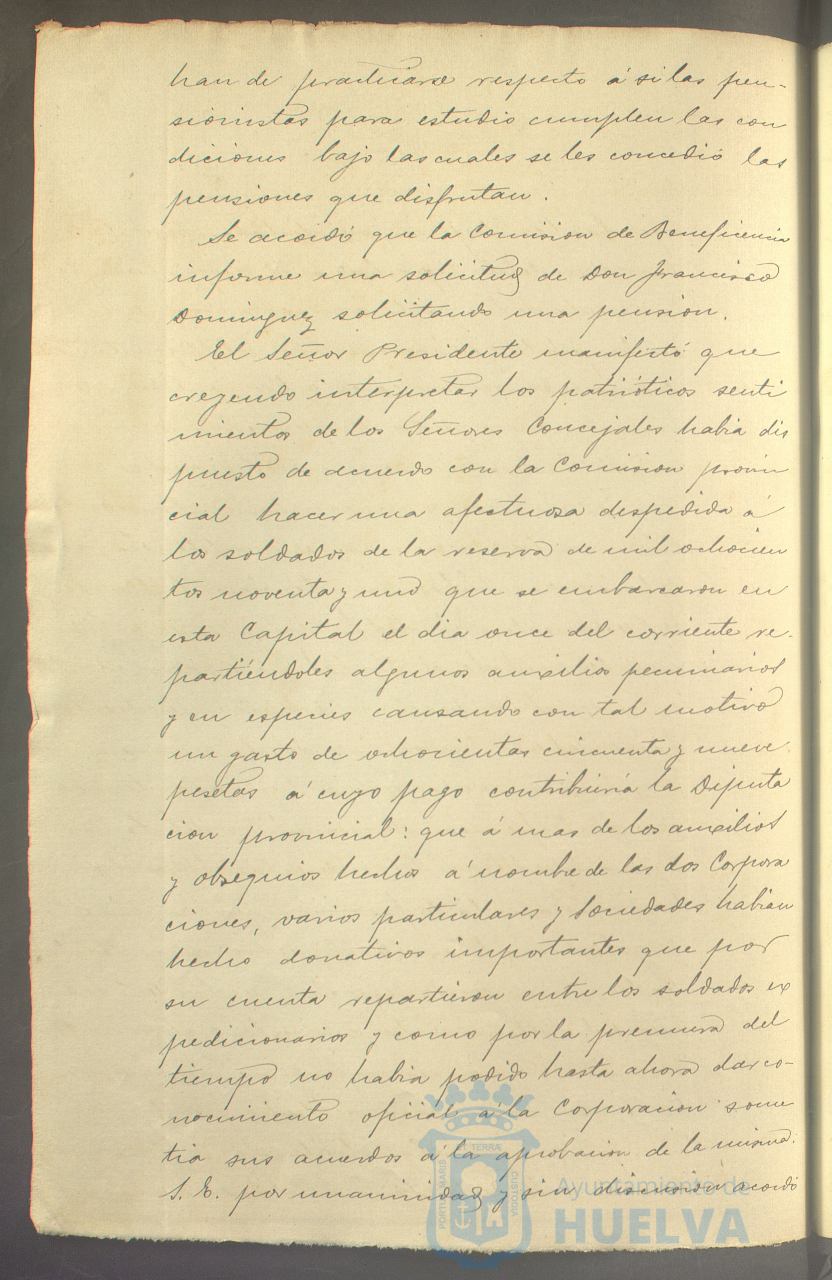 han de practicarse respecto á si las pen-
sionistas para estudio cumplen las con
diciones bajo las cuales se les concedió las
pensiones que disfrutan.
Se acordó que la Comision de Beneficencia
informe una solicitud de Don Francisco
Dominguez solicitando una pension.
El Señor Presidente manifestó que
creyendo interpretar los patrióticos senti
mientos de los Señores Concejales habia dis
puesto de acuerdo con la Comision provin
cial hacer una afectuosa despedida á
los soldados de la reserva de mil ochocien
tos noventa y uno que se embarcaron en
esta Capital el dia once del corriente re-
partiéndoles algunos auxilios pecuniarios
y en especies causando con tal motivo
un gasto de ochocientas cincuenta y nueve
pesetas á cuyo pago contribuiria la Diputa
cion provincial: que á mas de los auxilios
y obsequios hechos á nombre de las dos Corpora
ciones, varios particulares y Sociedades habian
hecho donativos importantes que por
su cuenta repartieron entre los soldados ex
pedicionarios y como por la premura del
tiempo no habia podido hasta ahora dar co-
nocimiento oficial á la Corporacion some
tia sus acuerdos á la aprobacion de la misma.
S. E. por unanimidad y sin discusion acordó
PORTUS MARIS ET TERRÆ CUSTODIA
Ayuntamiento de
HUELVA